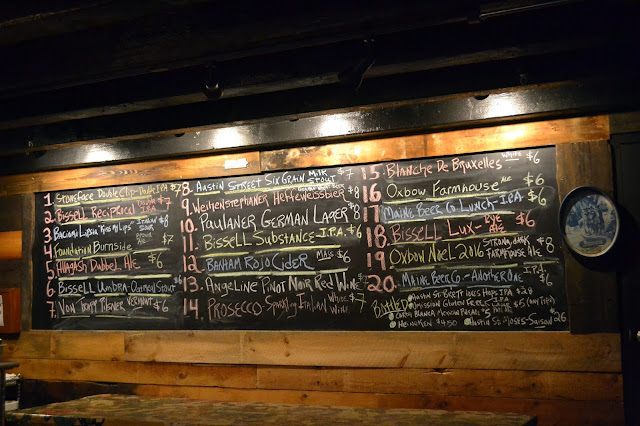 1 Stoneface Double Clip- Double IPA $7
2. Bissell Reciprocal $7
3. Baciami Lipsia "Kiss My Lips" Italian Sour $8
4. Foundation Burnside $7
5. Allagash Dubbel Ale $6
6. Bissell Umbra- Oatmeal Stout
7. Von Trapp Pilsner Vermont $6
8. Austin Street Six Grain Milk Stout $7
9. Weihenstephaner Hefeweissbier $8
10. Paulaner German Lager $8
11. Bissell Substance- IPA $6
12. Banham Rojo Cider Mass $6
13. Angeline Pinot Noir Red Wine
14. Prosecco- Sparkling Italian White Wine $7
15. Blanche De Bruxelles White $6
16 Oxbow Farmhouse Ale $6
17 Maine Beer Co Lunch- IPA $6
18. Bissell Lux- Rye Ale $6
19. Oxbow Noel 2016 Strong, dark Farmhouse Ale $8
20. Maine Beer Co- Another One IPA $6
Bottled
Heineken $4.50